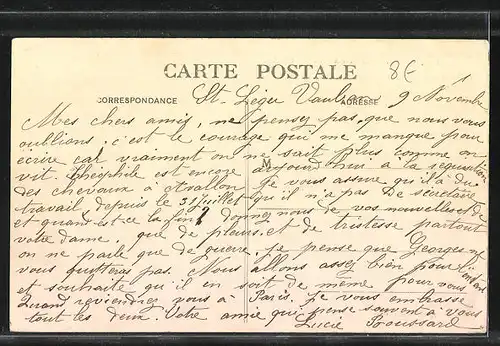 8€
CARTE POSTALE
CORRESPONDANCE
ADRESSE
St. Léger Vauban 9 Novembre
Mes chers amis, ne pensez pas que nous vous
oullions c'est le courage qui me manque pour
écrire car vraiment on ne sait plus comme on
vit Théophile est encore aujourd'hui à la réquisition
des chevaux à Avallon je vous assure qu'il a du
travail depuis le 31 juillet qu'il n'a pas de secrétaire
et quand est ce la fin? donnez nous de vos nouvelles et de
votre dame, que de pleurs et de tristesse partout
on ne parle que de guerre je pense que Georges ne
vous quittera pas. Nous allons assez bien pour l'instant
et souhaite qu'il en soit de même pour vous
Quand reviendrez vous à Paris. je vous embrasse
tout les deux. Votre amie qui pense souvent à vous
Lucie Boussard